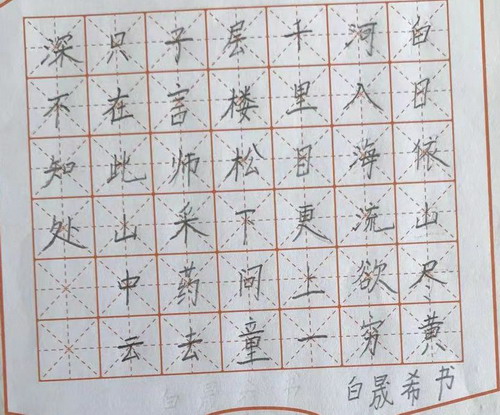 白日依山尽黄
河入海流欲穷
千里目更上一
层楼松下问童
子言师采药去
只在此山中云
深不知处
白晟希书